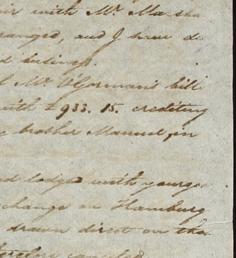 with Mr. Ma
ranged, and I have
Mr. OGorman's bill
with £933. 15. crediting
brother Manuel, in
lodged with yours
change on Hamburg
drawn direct on the